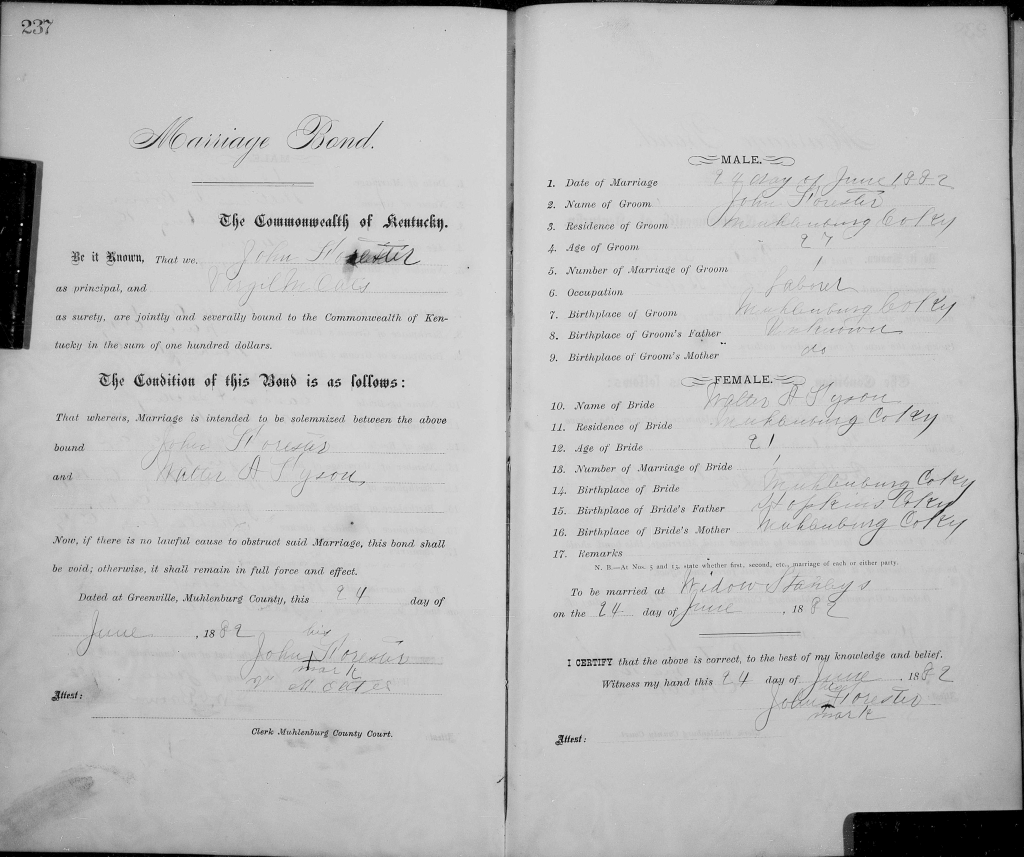 237
Marriage Bond.
The Commonwealth of Kentucky.
Be it Known, That we, John Forester
as principal, and Virgil M. Oats
as surety, are jointly and severally bound to the Commonwealth of Ken-
tucky in the sum of one hundred dollars.
The Condition of this Bond is as follows:
That whereas, Marriage is intended to be solemnized between the above
bound John Forester
and Walter A Tyson
Now, if there is no lawful cause to obstruct said Marriage, this bond shall
be void; otherwise, it shall remain in full force and effect.
Dated at Greenville, Muhlenburg County, this 24 day of
June, 1882
his
John Forester
mark
M Oates
Attest:
Clerk Muhlenburg County Court.
MALE.
1. Date of Marriage 24 day of June 1882
2. Name of Groom John Forester
3. Residence of Groom Muhlenburg Co Ky
4. Age of Groom 27
5. Number of Marriage of Groom 1
6. Occupation Laborer
7. Birthplace of Groom Muhlenburg Co Ky
8. Birthplace of Groom's Father Unknown
9. Birthplace of Groom's Mother do
FEMALE.
10. Name of Bride Walter A Tyson
11. Residence of Bride Muhlenburg Co Ky
12. Age of Bride 21
13. Number of Marriage of Bride 1
14. Birthplace of Bride Muhlenburg Co Ky
15. Birthplace of Bride's Father Hopkins Co Ky
16. Birthplace of Bride's Mother Muhlenburg Co Ky
17. Remarks
N. B.—At Nos. 5 and 15, state whether first, second, etc., marriage of each or either party.
To be married at Widow Stanleys
on the 24 day of June, 1882
I CERTIFY that the above is correct, to the best of my knowledge and belief.
Witness my hand this 24 day of June, 1882
his
John Forester
mark
Attest: